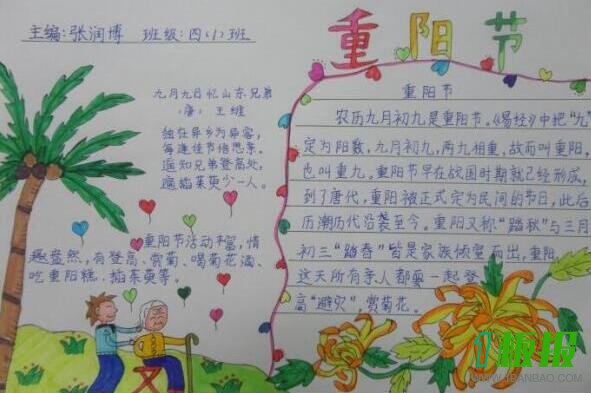 主编:张润博 班级:四(1)班
重阳节
九月九日忆山东兄弟
(唐) 王维
独在异乡为异客,
每逢佳节倍思亲。
遥知兄弟登高处,
遍插茱萸少一人。
重阳节活动丰富,情
趣盎然,有登高、赏菊、喝菊花酒、
吃重阳糕、插茱萸等。
重阳节
农历九月初九是重阳节。《易经》中把“九”
定为阳数,九月初九,两九相重,故而叫重阳,
也叫重九。重阳节早在战国时期就已经形成,
到了唐代,重阳被正式定为民间的节日,此后
历潮历代沿袭至今。重阳又称“踏秋”与三月
初三“踏春”皆是家族倾室而出,重阳
这天所有亲人都要一起登
高“避灾”,赏菊花。
板报
WWW.1BANBAO.COM